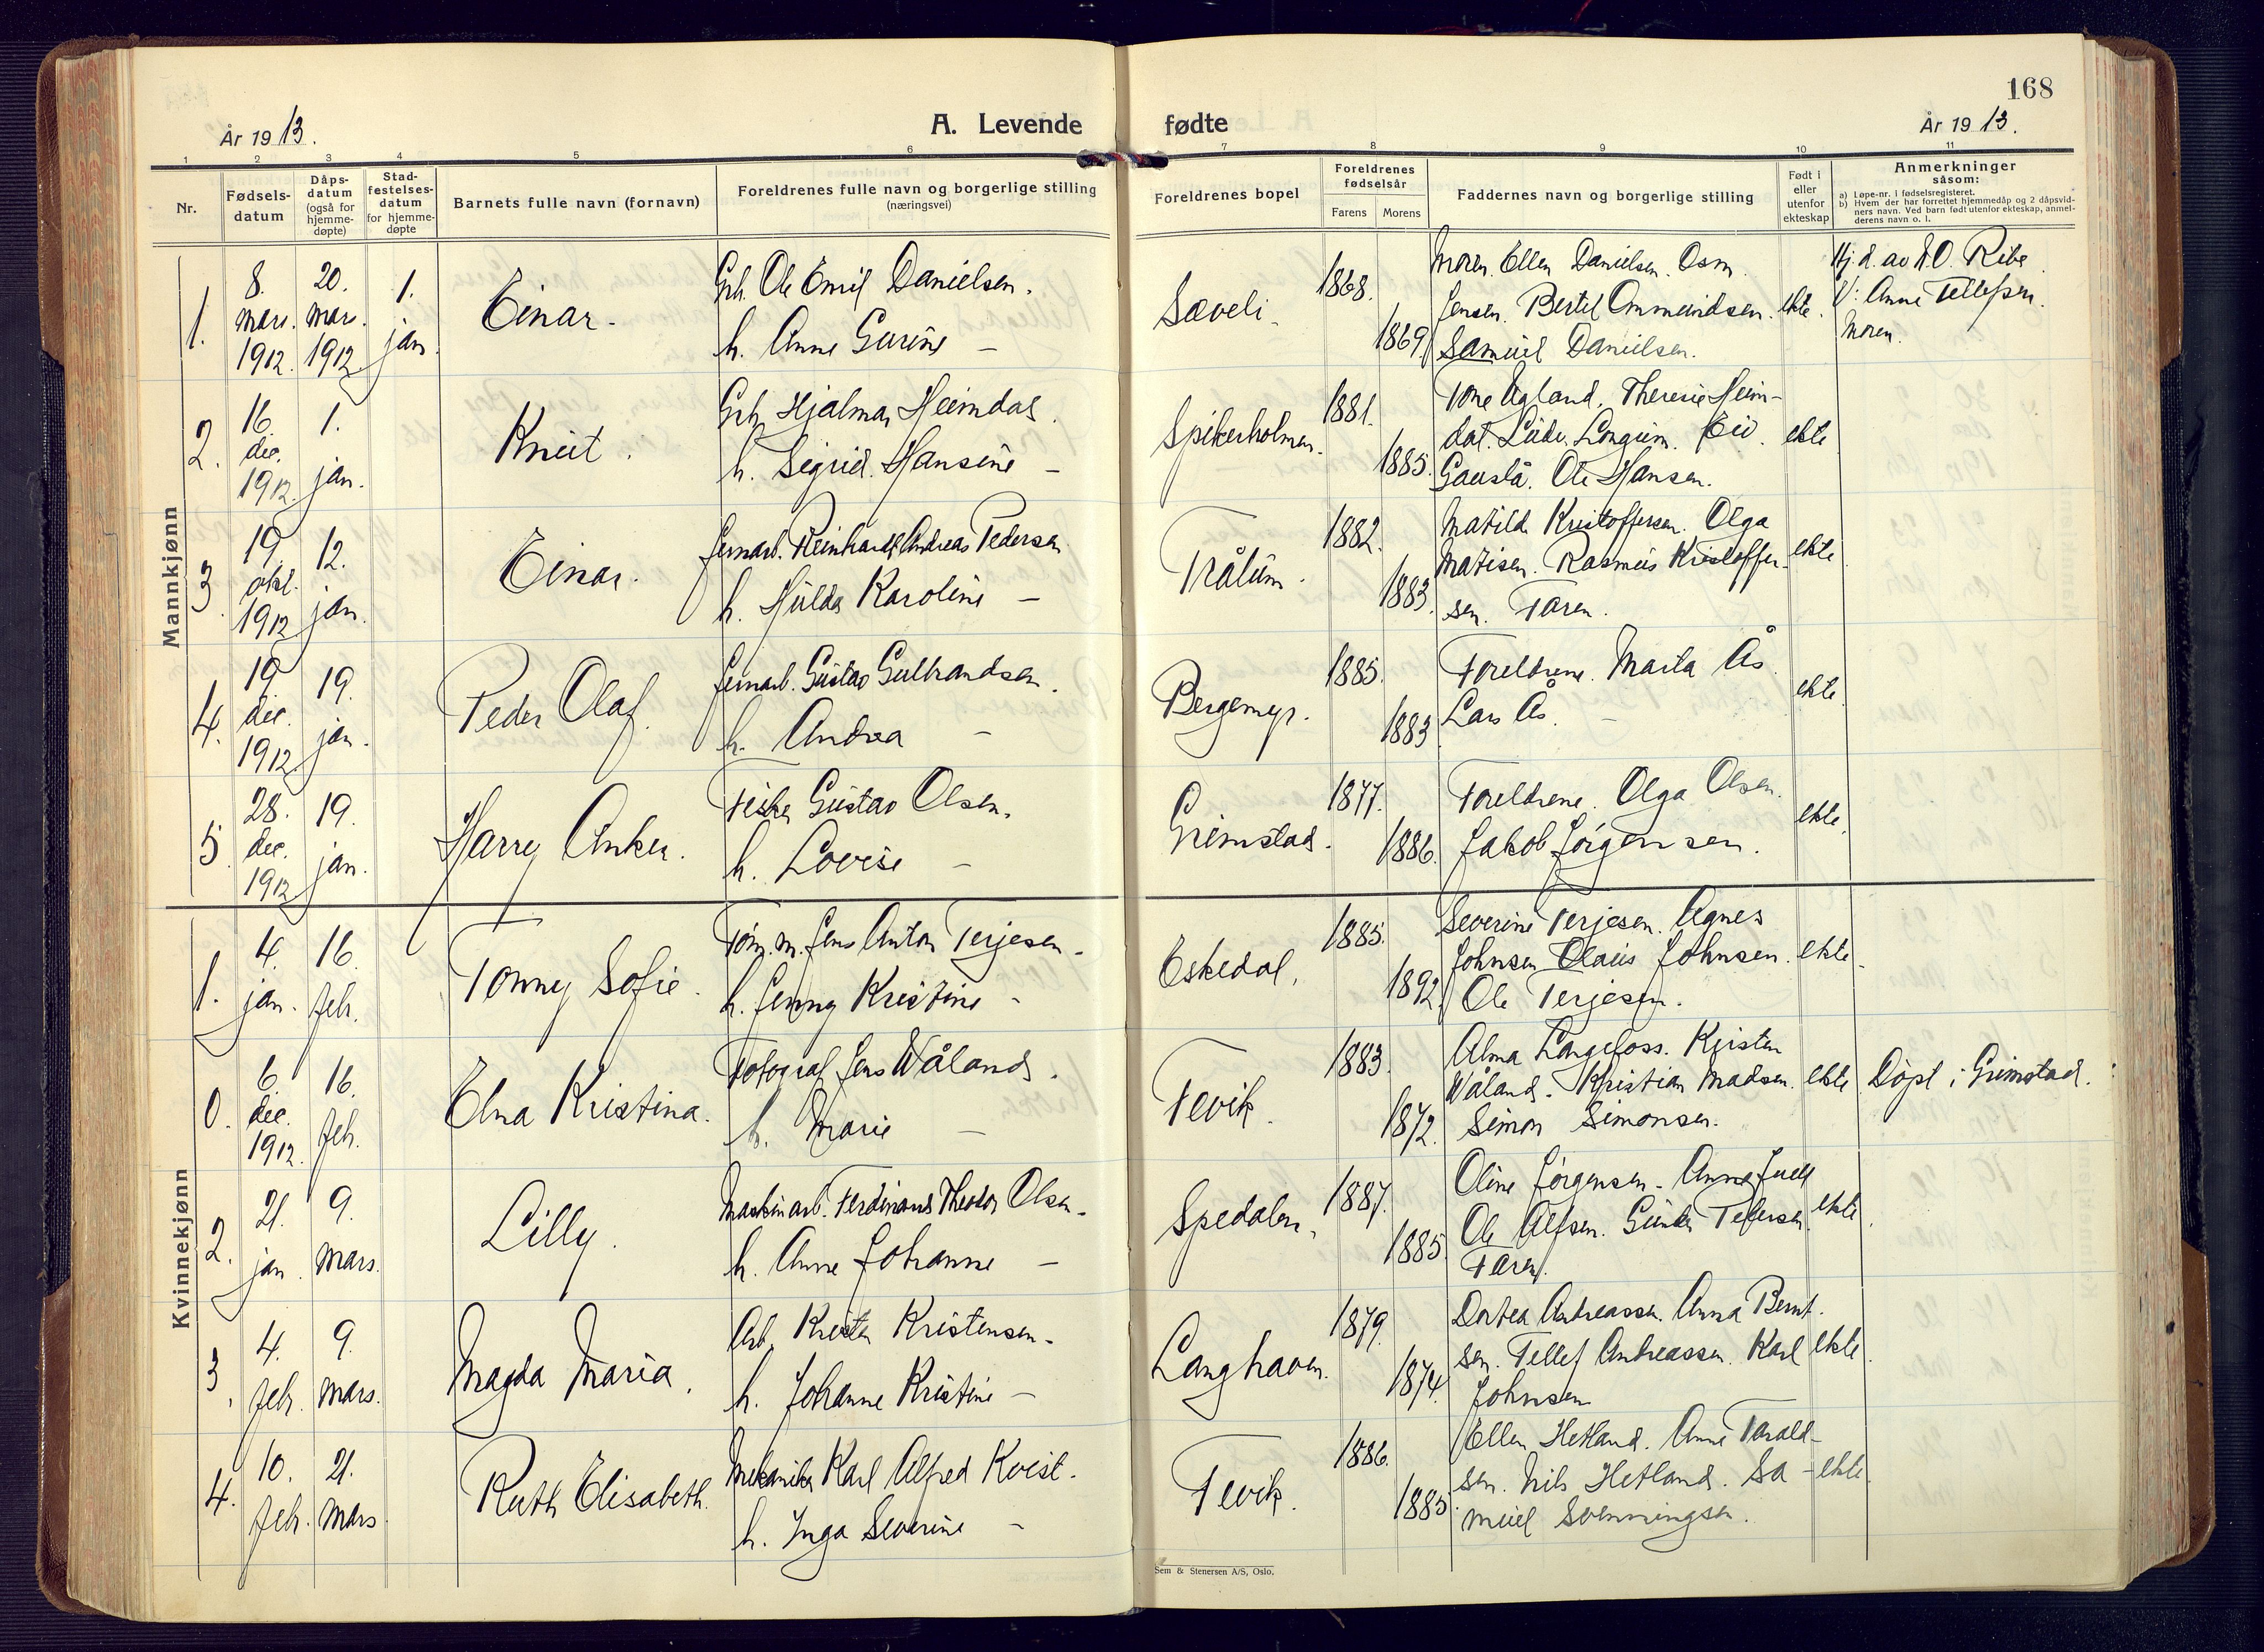 168
År 1913.
A. Levende
fødte
År 1913.
1 2 3 4 5 6 7 8 9 10 11
Nr.
Fødsels-
datum
Dåps-
datum
(også for
hjemme-
døpte)
Stad-
festelses-
datum
for hjemme-
døpte
Barnets fulle navn (fornavn)
Foreldrenes fulle navn og borgerlige stilling
(næringsvei)
Foreldrenes bopel
Foreldrenes
fødselsår
Farens Morens
Faddernes navn og borgerlige stilling
Født i
eller
utenfor
ekteskap
Anmerkninger
såsom:
a) Løpe-nr. i fødselsregisteret.
b) Hvem der har forrettet hjemmedåp og 2 dåpsvid-
ners navn. Ved barn født utenfor ekteskap, anmel-
derens navn o. l.
Mannkjønn
1.
8.
mars.
1912.
20.
mars.
1912
1.
jan.
Einar.
Grb. Ole Emil Danielsen.
h. Anne Gurine —
Sæveli.
1868.
1869
Moren. Ellen Danielsen. Osm.
Jensen. Bertel Ommundsen.
Samuel Danielsen.
ekte.
Hj. d. av A. O. Ribe
V: Anne Tellefsen.
Moren.
2.
16.
dec.
1912.
1.
jan.
Knut.
Grb. Hjalmar Heimdal.
h. Sigrid Hansine —
Spikerholmen.
1881.
1885.
Tone Ugland. Theresie Heim-
dal. Ludv. Longum. Eiv.
Gauslå. Ole Hansen.
ekte
3.
19.
okt.
1912
12.
jan.
Einar.
Jernarb. Reinhardt Andreas Pedersen
h. Hulda Karoline —
Trålum.
1882.
1883.
Matilde Kristoffersen. Olga
Matisen. Rasmus Kristoffer-
sen. Faren.
ekte
4.
19
dec.
1912
19.
jan.
Peder Olaf.
Jernarb. Gustav Gulbrandsen.
h. Andrea —
Bergemyr.
1885.
1883
Foreldrene. Marta Ås.
Lars Ås. —
ekte.
5.
28.
dec.
1912
19.
jan.
Harry Anker.
Fisker Gustav Olsen.
h. Lovise —
Grimstad.
1877.
1886.
Foreldrene. Olga Olsen.
Jakob Jørgensen.
ekte.
Kvinnekjønn
1.
4.
jan.
16.
feb.
Tonny Sofie.
Tøm. m. Jens Anton Terjesen.
h. Jenny Kristine -
Eskedal.
1885.
1892
Severine Terjesen. Agnes
Johnsen Olaus Johnsen.
Ole Terjesen.
ekte
0.
6.
dec.
1912.
16.
feb.
Elna Kristina.
Fotograf Jens Våland.
h. Marie —
Fevik.
1883.
1872.
Alma Langefoss. Kristen
Våland. Kristian Madsen.
Simon Simonsen.
ekte
Døpt i Grimstad.
2.
21.
jan.
9.
mars.
Lilly.
Maskinarb. Ferdinand Theodor Olsen.
h. Anne Johanne —
Spedalen.
1887.
1885.
Oline Jørgensen. Anna Juell
Ole Alfsen. Gunder Pedersen
Faren.
ekte.
3.
4.
feb.
9.
mars.
Magda Maria.
Arb. Kristen Kristensen.
h. Johanne Kristine —
Langhaven.
1879.
1874.
Dortea Andreassen. Anna Bernt-
sen. Tellef Andreassen. Karl
Johnsen
ekte.
4.
10.
feb.
21.
mars
Ruth Elisabeth.
Mekaniker Karl Alfred Kvist.
h. Inga Severine —
Fevik.
1886.
1885.
Ellen Hetland. Anne Tarald-
sen. Nils Hetland. Sa-
muel Svenningsen.
ekte
Sem & Stenersen A/S, Oslo.